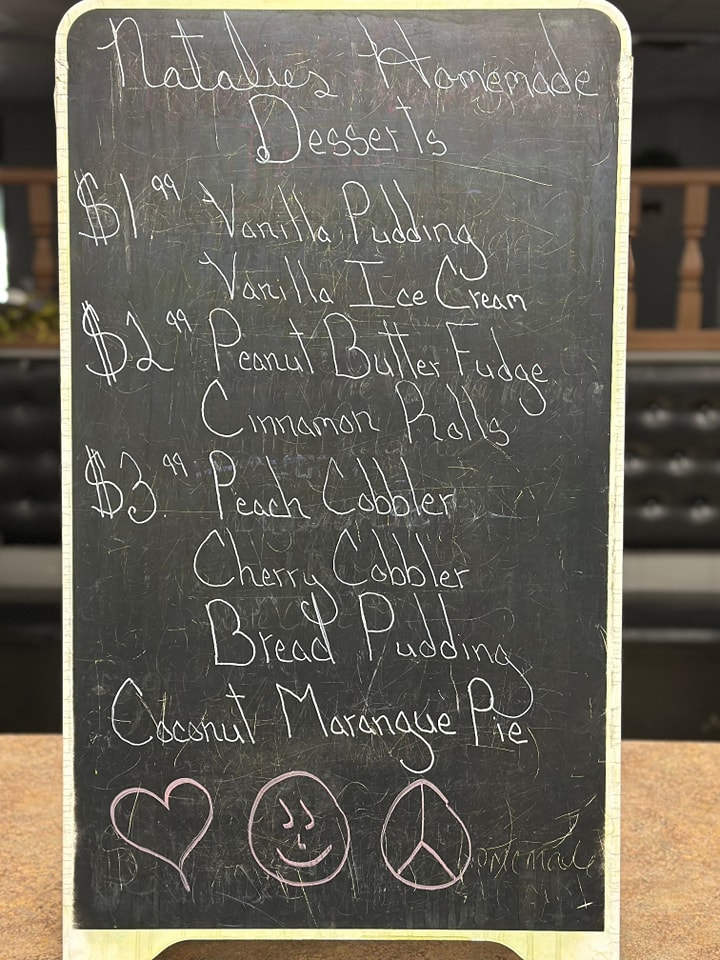 Natalies Homemade
Desserts
$1.99 Vanilla Pudding
Vanilla Ice Cream
$2.99 Peanut Butter Fudge
Cinnamon Rolls
$3.99 Peach Cobbler
Cherry Cobbler
Bread Pudding
Coconut Marangue Pie